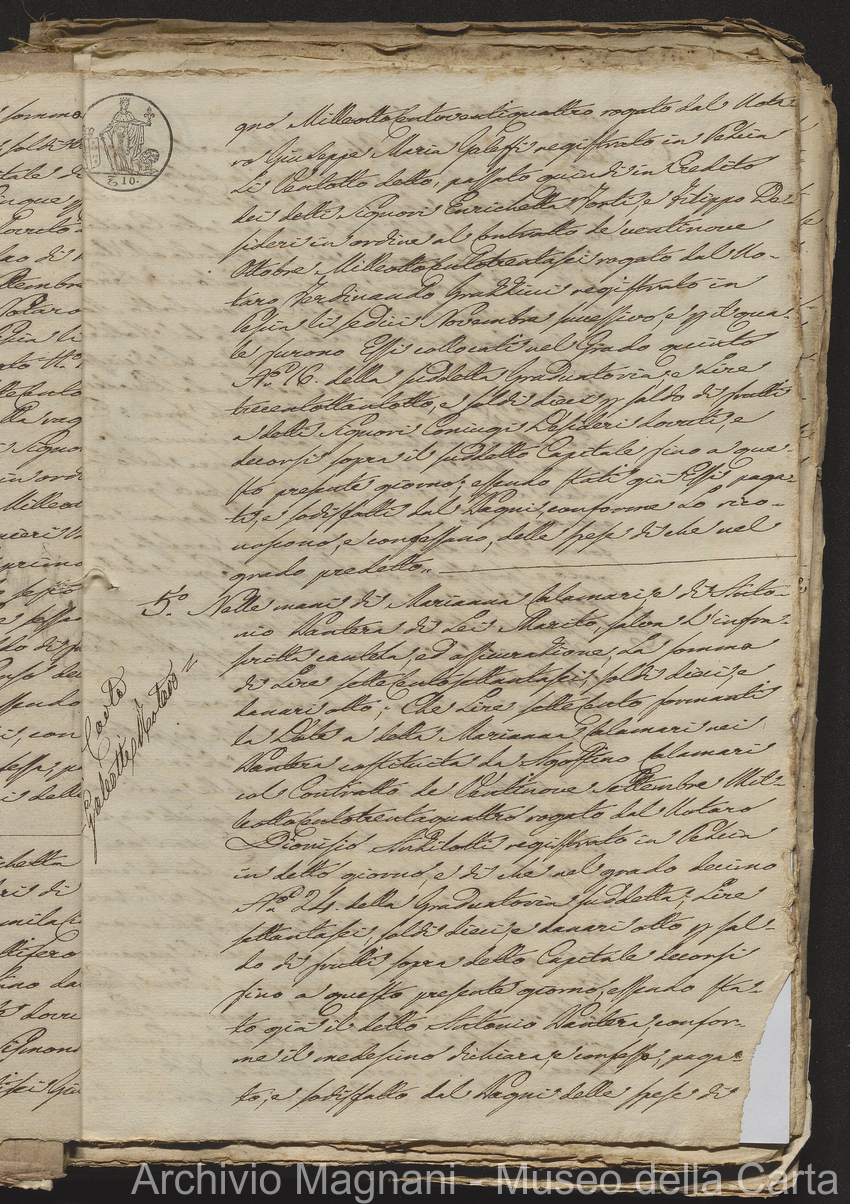 gno MilleottoCentoventiquattro rogato dal Nota-
ro Giuseppe Maria Galeffi registrato in Pescia
li Ventotto detto, passato quindi in Credito
dei detti Signori Enrichetta Forti, e Filippo De-
sideri in ordine al Contratto de ventinove
Ottobre MilleottoCentotrentasei rogato dal No-
taro Ferdinando registrato in
Pescia li sedici Novembre successivo, e p il qua-
le furono Essi collocati nel Grado quinto
Nº 16. della suddetta Graduatoria e Lire
trecentottantotto, e soldi dieci p saldo di frutti
a detti Signori Coniugi Desideri dovuti, e
decorsi sopra il suddetto Capitale fino a que-
sto presente giorno, essendo stati già Essi paga-
ti, e sodisfatti dal Vagni, conforme Lo rico-
noscono, e confessano, delle spese di che nel
grado predetto.
5.º Nelle mani di Marianna Calamari, e di Anto-
nio Pantera di Lei Marito, salva l'infra-
scritta cautela, ed assicurazione, La somma
di Lire sette Cento settantasei, soldi dieci, e
danari otto; Che Lire sette Cento formanti
la Dote a detta Marianna Calamari nei
Pantera costituita da Agostino Calamari
col Contratto de Ventinove Settembre Mil-
leottoCentotrentaquattro rogato dal Notaro
Dionisio registrato in Pescia
in detto giorno, e di che nel grado decimo
Nº 24. della Graduatoria suddetta; Lire
settantasei, soldi dieci, e danari otto p sal-
do di frutti sopra detto Capitale decorsi
fino a questo presente giorno, essendo sta-
to già il detto Antonio Pantera, confor-
me il medesimo dichiara, e confessa, paga-
to, e sodisfatto dal Vagni delle spese di
Carta
Galeotti Notaro
10.
Archivio Magnani - Museo della Carta